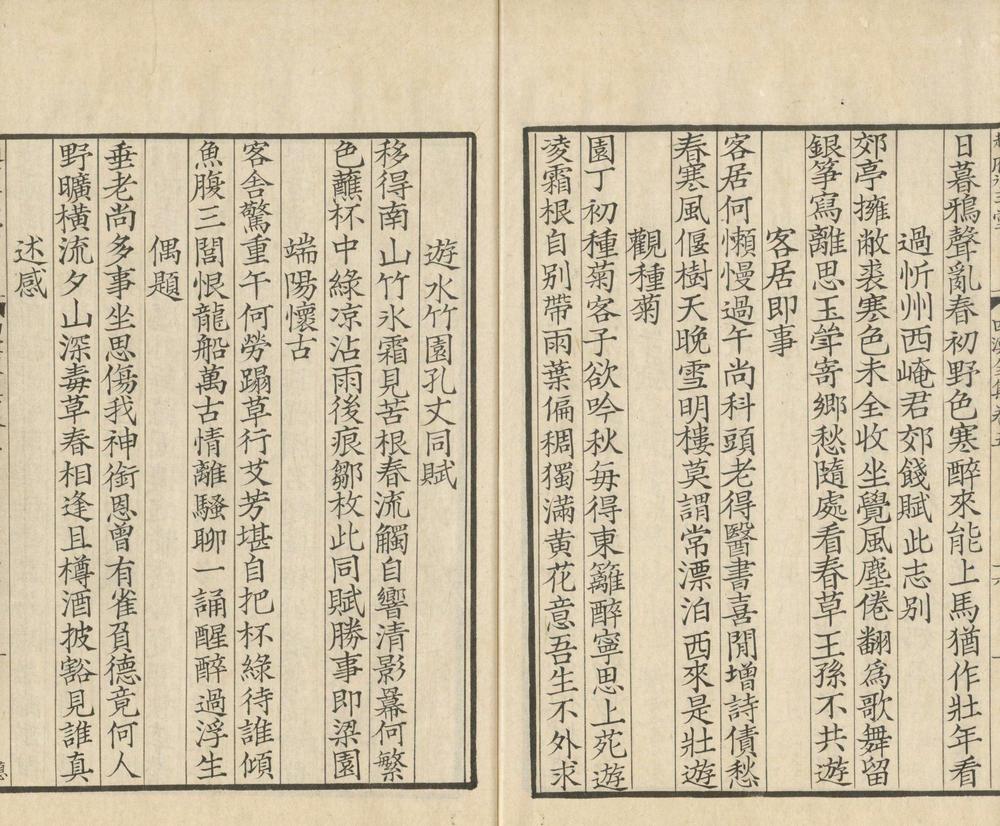 日暮鴉聲亂春初野色寒醉來能上馬猶作壯年看
過忻州西崦君郊餞賦此志别
郊亭擁敝裘寒色未全收坐覺風塵倦翻爲歌舞留
銀筝寫離思玉斝寄鄉愁隨處看春草王孫不共遊
客居即事
客居何懶慢過午尚科頭老得醫書喜閒增詩債愁
春寒風偃樹天晚雪明樓莫謂常漂泊西來是壯遊
觀種菊
園丁初種菊客子欲吟秋每得東籬醉寧思上苑遊
凌霜根自别帶雨葉偏稠獨滿黄花意吾生不外求
遊水竹園孔丈同賦
移得南山竹氷霜見苦根春流觸自響清影羃何繁
色蘸杯中綠凉沾雨後痕鄒枚此同賦勝事即梁園
端陽懷古
客舍驚重午何勞蹋草行艾芳堪自把杯綠待誰傾
魚腹三閭恨龍船萬古情離騷聊一誦醒醉過浮生
偶題
垂老尚多事坐思傷我神銜恩曾有雀負德竟何人
野曠橫流夕山深毒草春相逢且樽酒披豁見誰真
述感